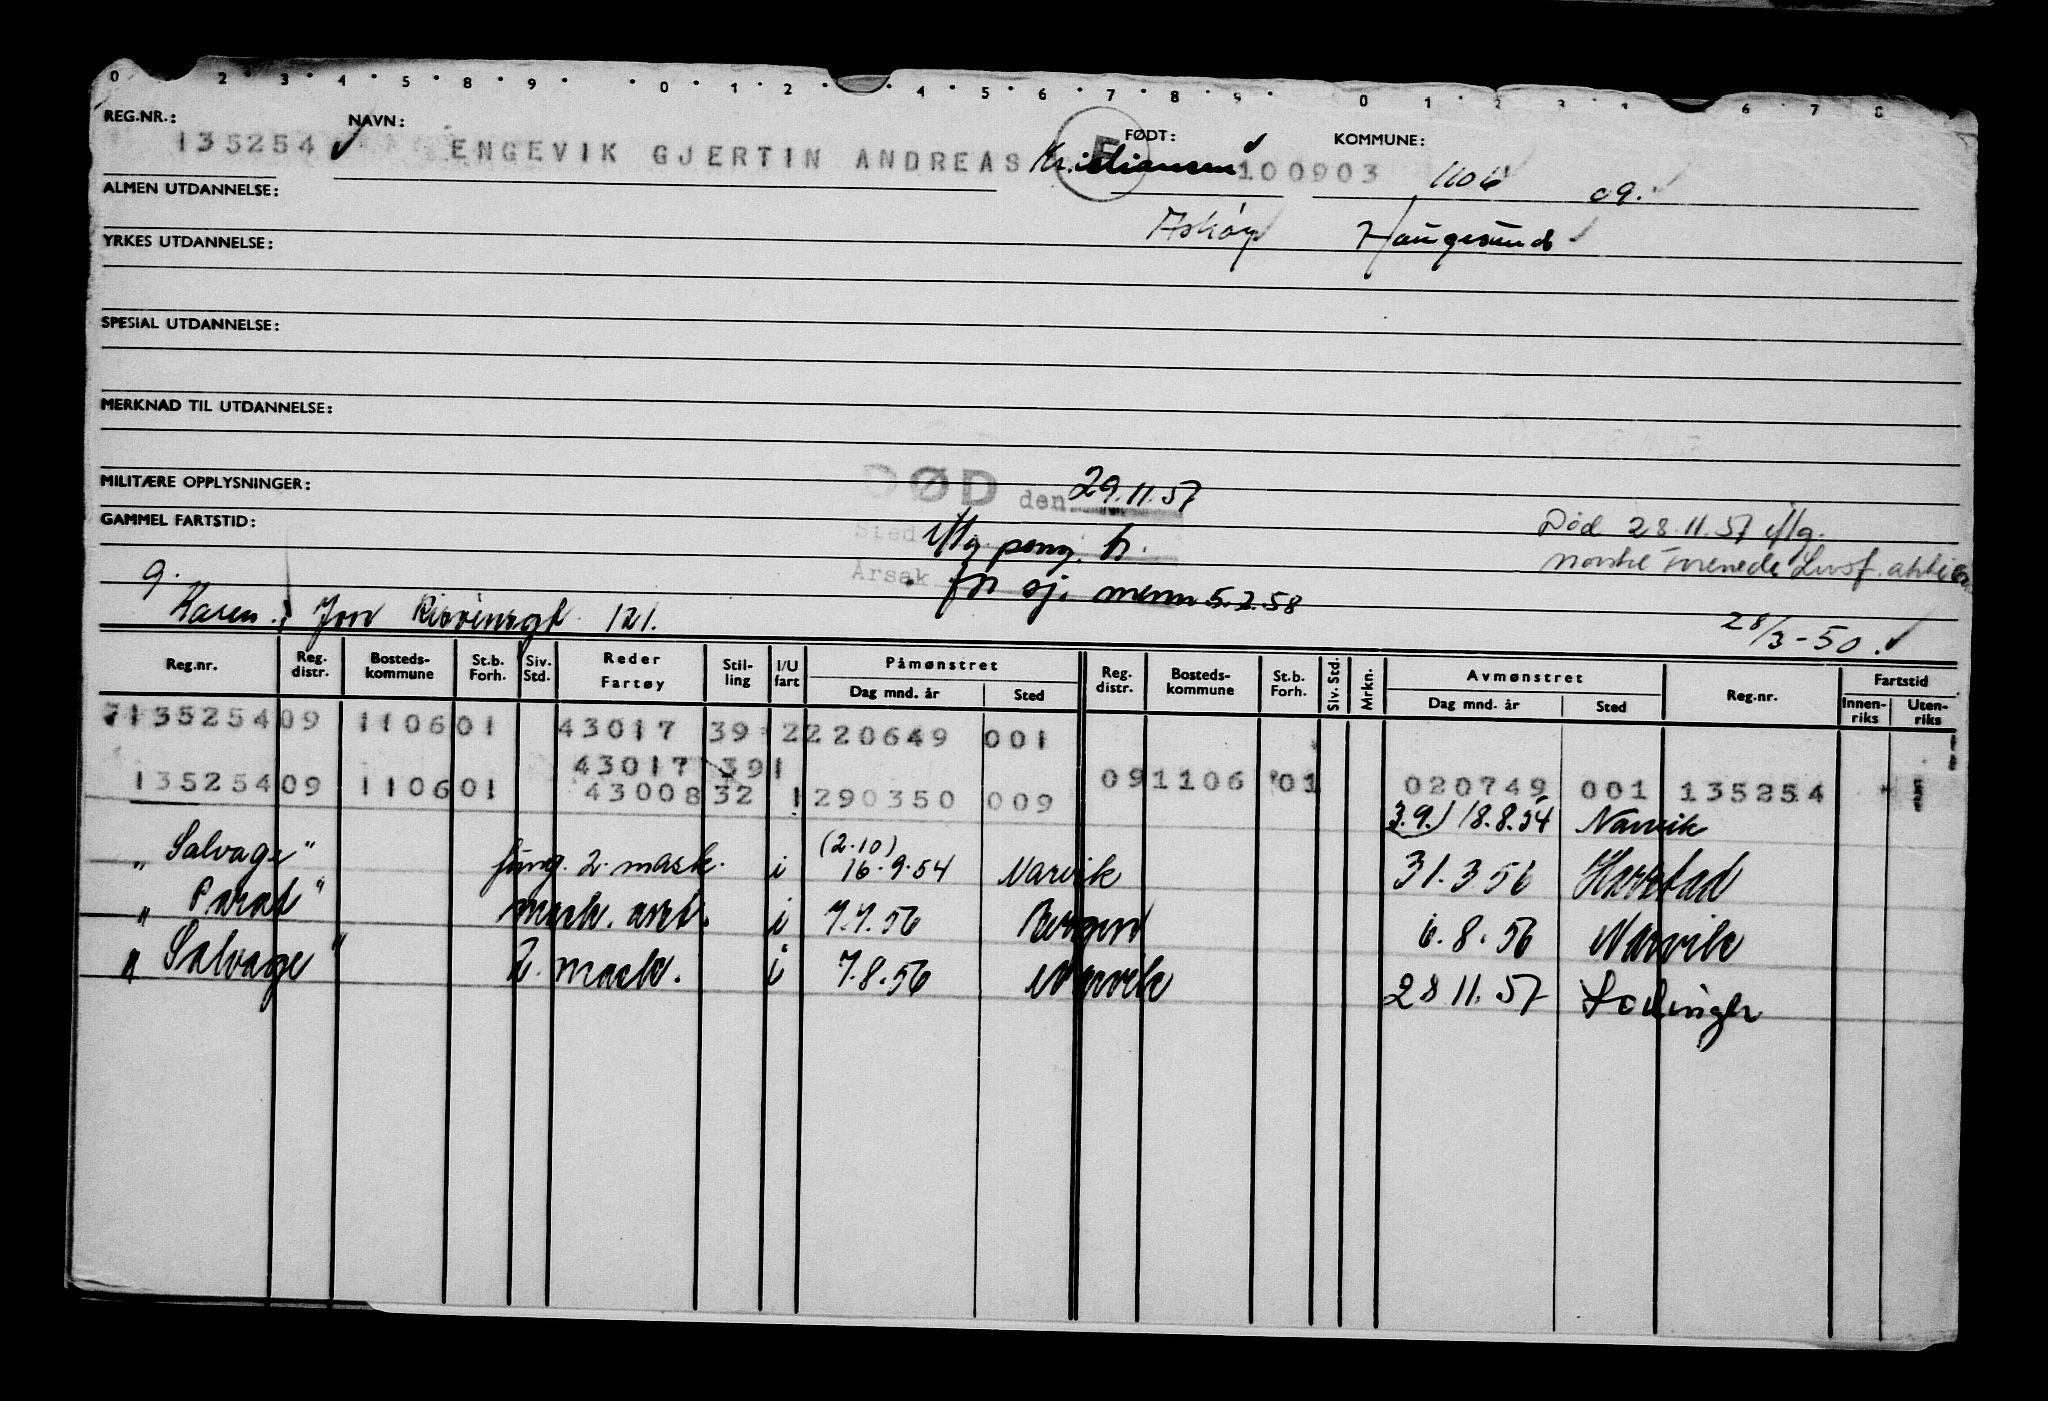 0 2 3 4 5 8 9 0 1 2 4 5 6 7 8 9 0 1 2 3 4 6 7 8
REG.NR.: NAVN: FØDT: KOMMUNE:
135254 ENGEVIK GJERTIN ANDREAS Kristiansen E 100903 1106 09.
ALMEN UTDANNELSE:
Askøy Haugesund
YRKES UTDANNELSE:
SPESIAL UTDANNELSE:
MERKNAD TIL UTDANNELSE:
MILITÆRE OPPLYSNINGER:
DØD den 29.11.57
GAMMEL FARTSTID:
Sted iflg peng. tr. Død 28.11.57 iflg.
Årsak for sj. menn 5.2.58 norske Forenede Livsf.
g.
Karen. Jon 121. 28/3-50.
Reg.nr. Reg. distr. Bosteds-kommune St.b. Forh. Siv. Std. Reder Fartøy Stil-ling I/U fart Påmønstret Dag mnd. år Sted Reg. distr. Bosteds-kommune St.b. Forh. Siv. Std. Mrkn. Avmønstret Dag mnd. år Sted Reg.nr. Fartstid Innen-riks Uten-riks
7135254 09 1106 01 43017 39 2 220649 001
43017 39 1 09 1106 01 020749 001 135254
135254 09 1106 01 43008 32 1 290350 009 3.9.) 18.8.54 Narvik
"Salvage" fung. 2. mask. i (2.10) 16.9.54 Narvik 31.3.56 Harstad
"Parat" mask. asst. i 7.7.56 Bergen 6.8.56 Narvik
"Salvage" 2. mask. i 7.8.56 Narvik 28.11.57 Lødingen